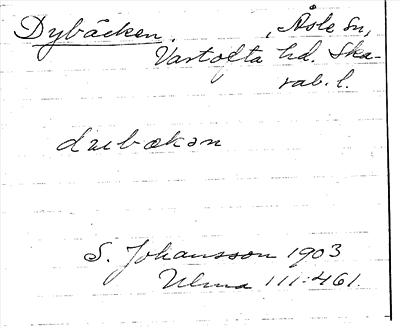 Dybäcken. , Åsle sn,
Vartofta hd. Ska-
rab. l.
dybækən
S. Johansson 1903
Ulma 111:461.